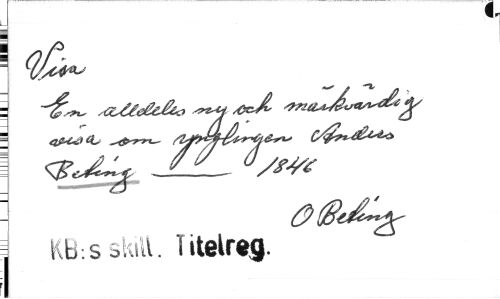 Visa
En alldeles ny och märkvärdig
visa om ynglingen Anders
Beting ——— 1846
O Beting
KB:s skill. Titelreg.